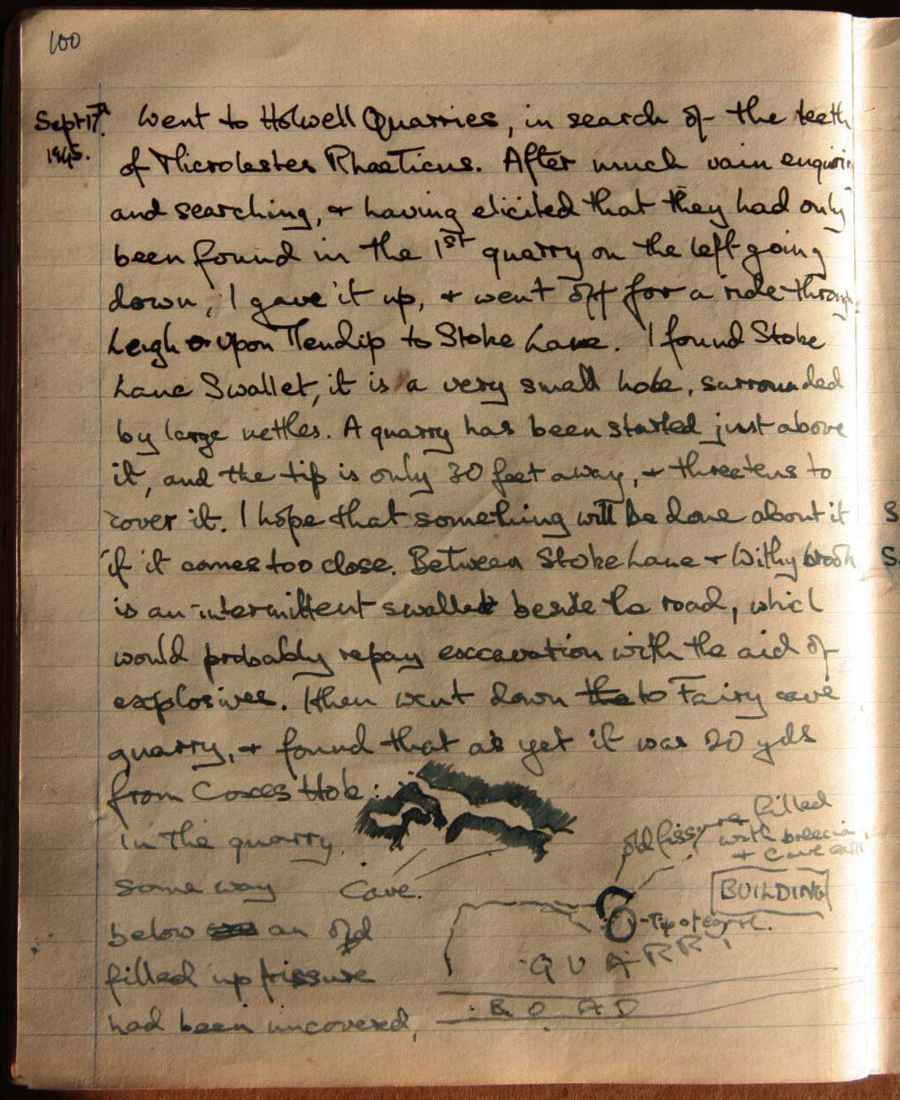 100
Sept 17th. Went to Holwell Quarries, in search of the teeth
1945. of Microlestes Rhaeticus. After much vain enquirin
and searching, & having elicited that they had only
been found in the 1st quarry on the left going
down, I gave it up, & went off for a ride through
Leigh upon Mendip to Stoke Lane. I found Stoke
Lane Swallet, it is a very small hole, surrounded
by large nettles. A quarry has been started just above
it, and the tip is only 30 feet away, & threatens to
cover it. I hope that something will be done about it
if it comes too close. Between Stoke Lane & Withybrook
is an intermittent swallet beside the road, which
would probably repay exccavation with the aid of
explosives. I then went down the to Fairy cave
quarry, & found that as yet it was 20 yds
from Coxes Hole:
In the quarry
some way
below an old
filled up fissure
had been uncovered,
Cave.
old fissure filled
with breccia
& cave earth
BUILDING
Tip of earth.
QUARRY
ROAD
S
S